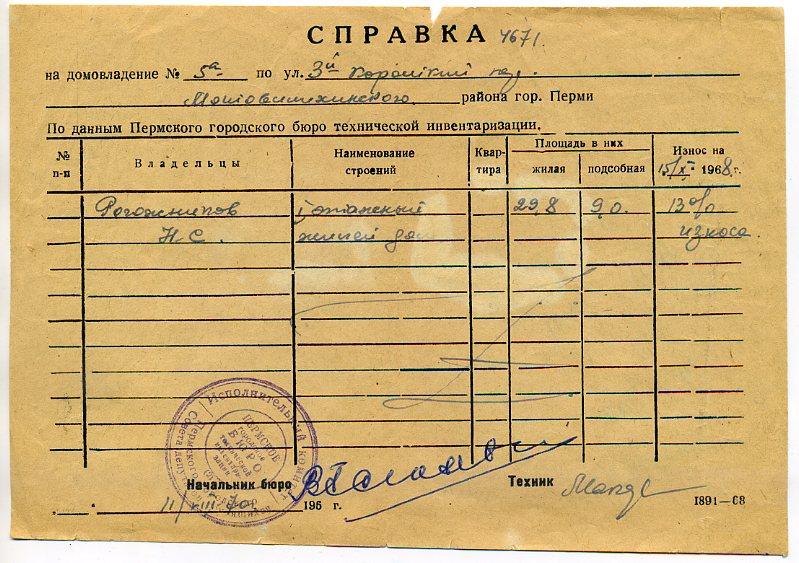 СПРАВКА 4671.
на домовладение № 5а по ул. 3й пер.
Мотовилихинского района гор. Перми
По данным Пермского городского бюро технической инвентаризации.
№ п-п Владельцы Наименование строений Квар- тира Площадь в них жилая подсобная Износ на 15/X 1968 г.
Рогожников 1 этажный 29,8 9,0. 13%
Н.С. жилой дом износа
Исполнительный комитет
Пермского
Совета депу
ПЕРМСКОЕ
городское
БЮРО
технической
инвентари
зации
Начальник бюро Техник
11/ 70. 196 г.
1891—68